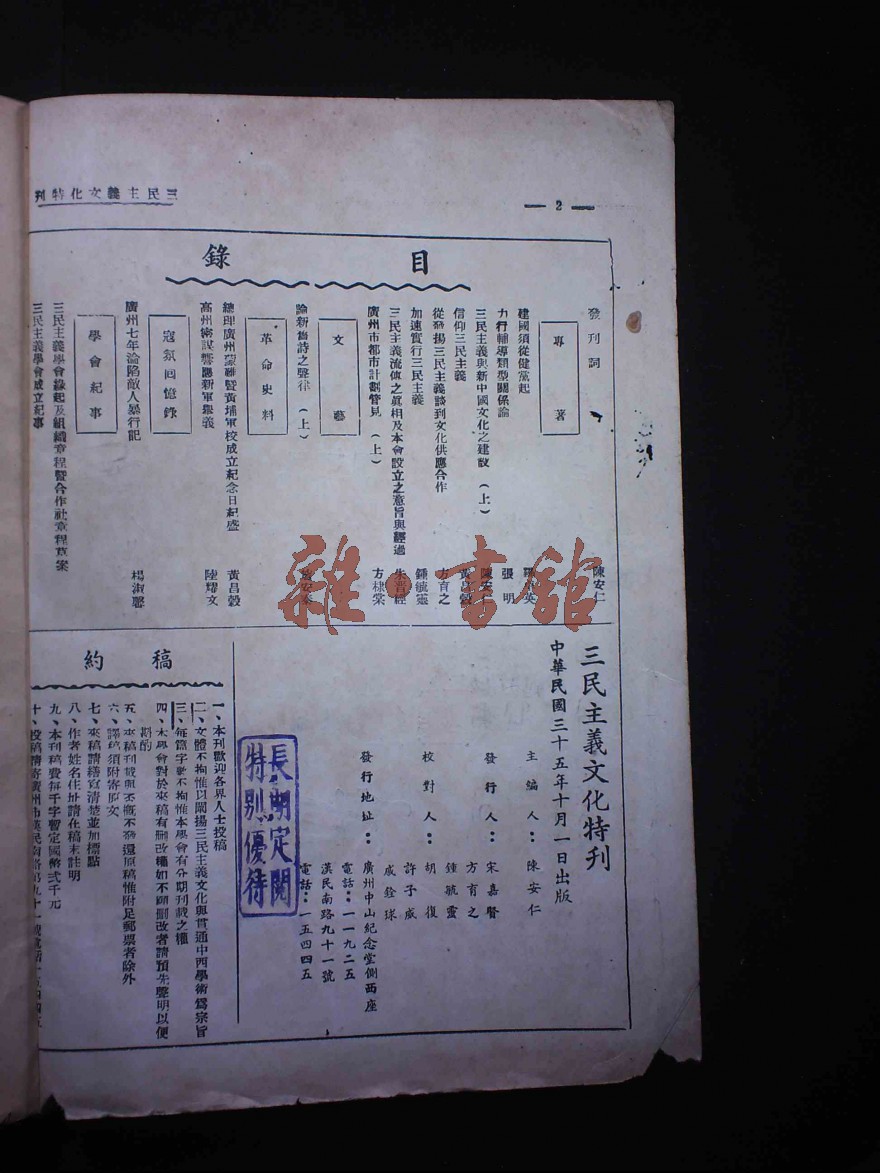 三民主義文化特刊
— 2 —
目錄
發刊詞 陳安仁
專著
建國須從健黨起
力行輔導類型關係論 張明
三民主義與新中國文化之建設（上）
信仰三民主義
從發揚三民主義談到文化供應合作 方育之
加速實行三民主義 鍾毓靈
三民主義流佈之真相及本會設立之意旨與經過
廣州市都市計劃管見（上） 方棣棠
文藝
論新舊詩之聲律（上）
革命史料
總理廣州蒙難暨黃埔軍校成立紀念日紀盛 黃昌穀
高州密謀響應新軍舉義 陸耀文
寇氛回憶錄
廣州七年淪陷敵人暴行記 楊淑馨
學會紀事
三民主義學會緣起及組織章程暨合作社章程草案
三民主義學會成立紀事
三民主義文化特刊
中華民國三十五年十月一日出版
主編人：陳安仁
發行人：宋嘉賢
方育之
鍾毓靈
校對人：胡復
許子威
戚銓球
發行地址：廣州中山紀念堂側西座
電話：一一九二五
漢民南路九十一號
電話：一五四四五
長期定閱
特別優待
稿約
一、本刊歡迎各界人士投稿
二、文體不拘惟以闡揚三民主義文化與貫通中西學術爲宗旨
三、每篇字數不拘惟本學會有分期刊載之權
四、本學會對於來稿有刪改權如不願刪改者請預先聲明以便
斟酌
五、來稿刊載與否概不發還原稿惟附足郵票者除外
六、譯稿須附寄原文
七、來稿請繕寫清楚並加標點
八、作者姓名住址請在稿末註明
九、本刊稿費每千字暫定國幣弍千元
十、投稿請寄廣州市漢民南路第九十一號電話一五四四五
雜·書館